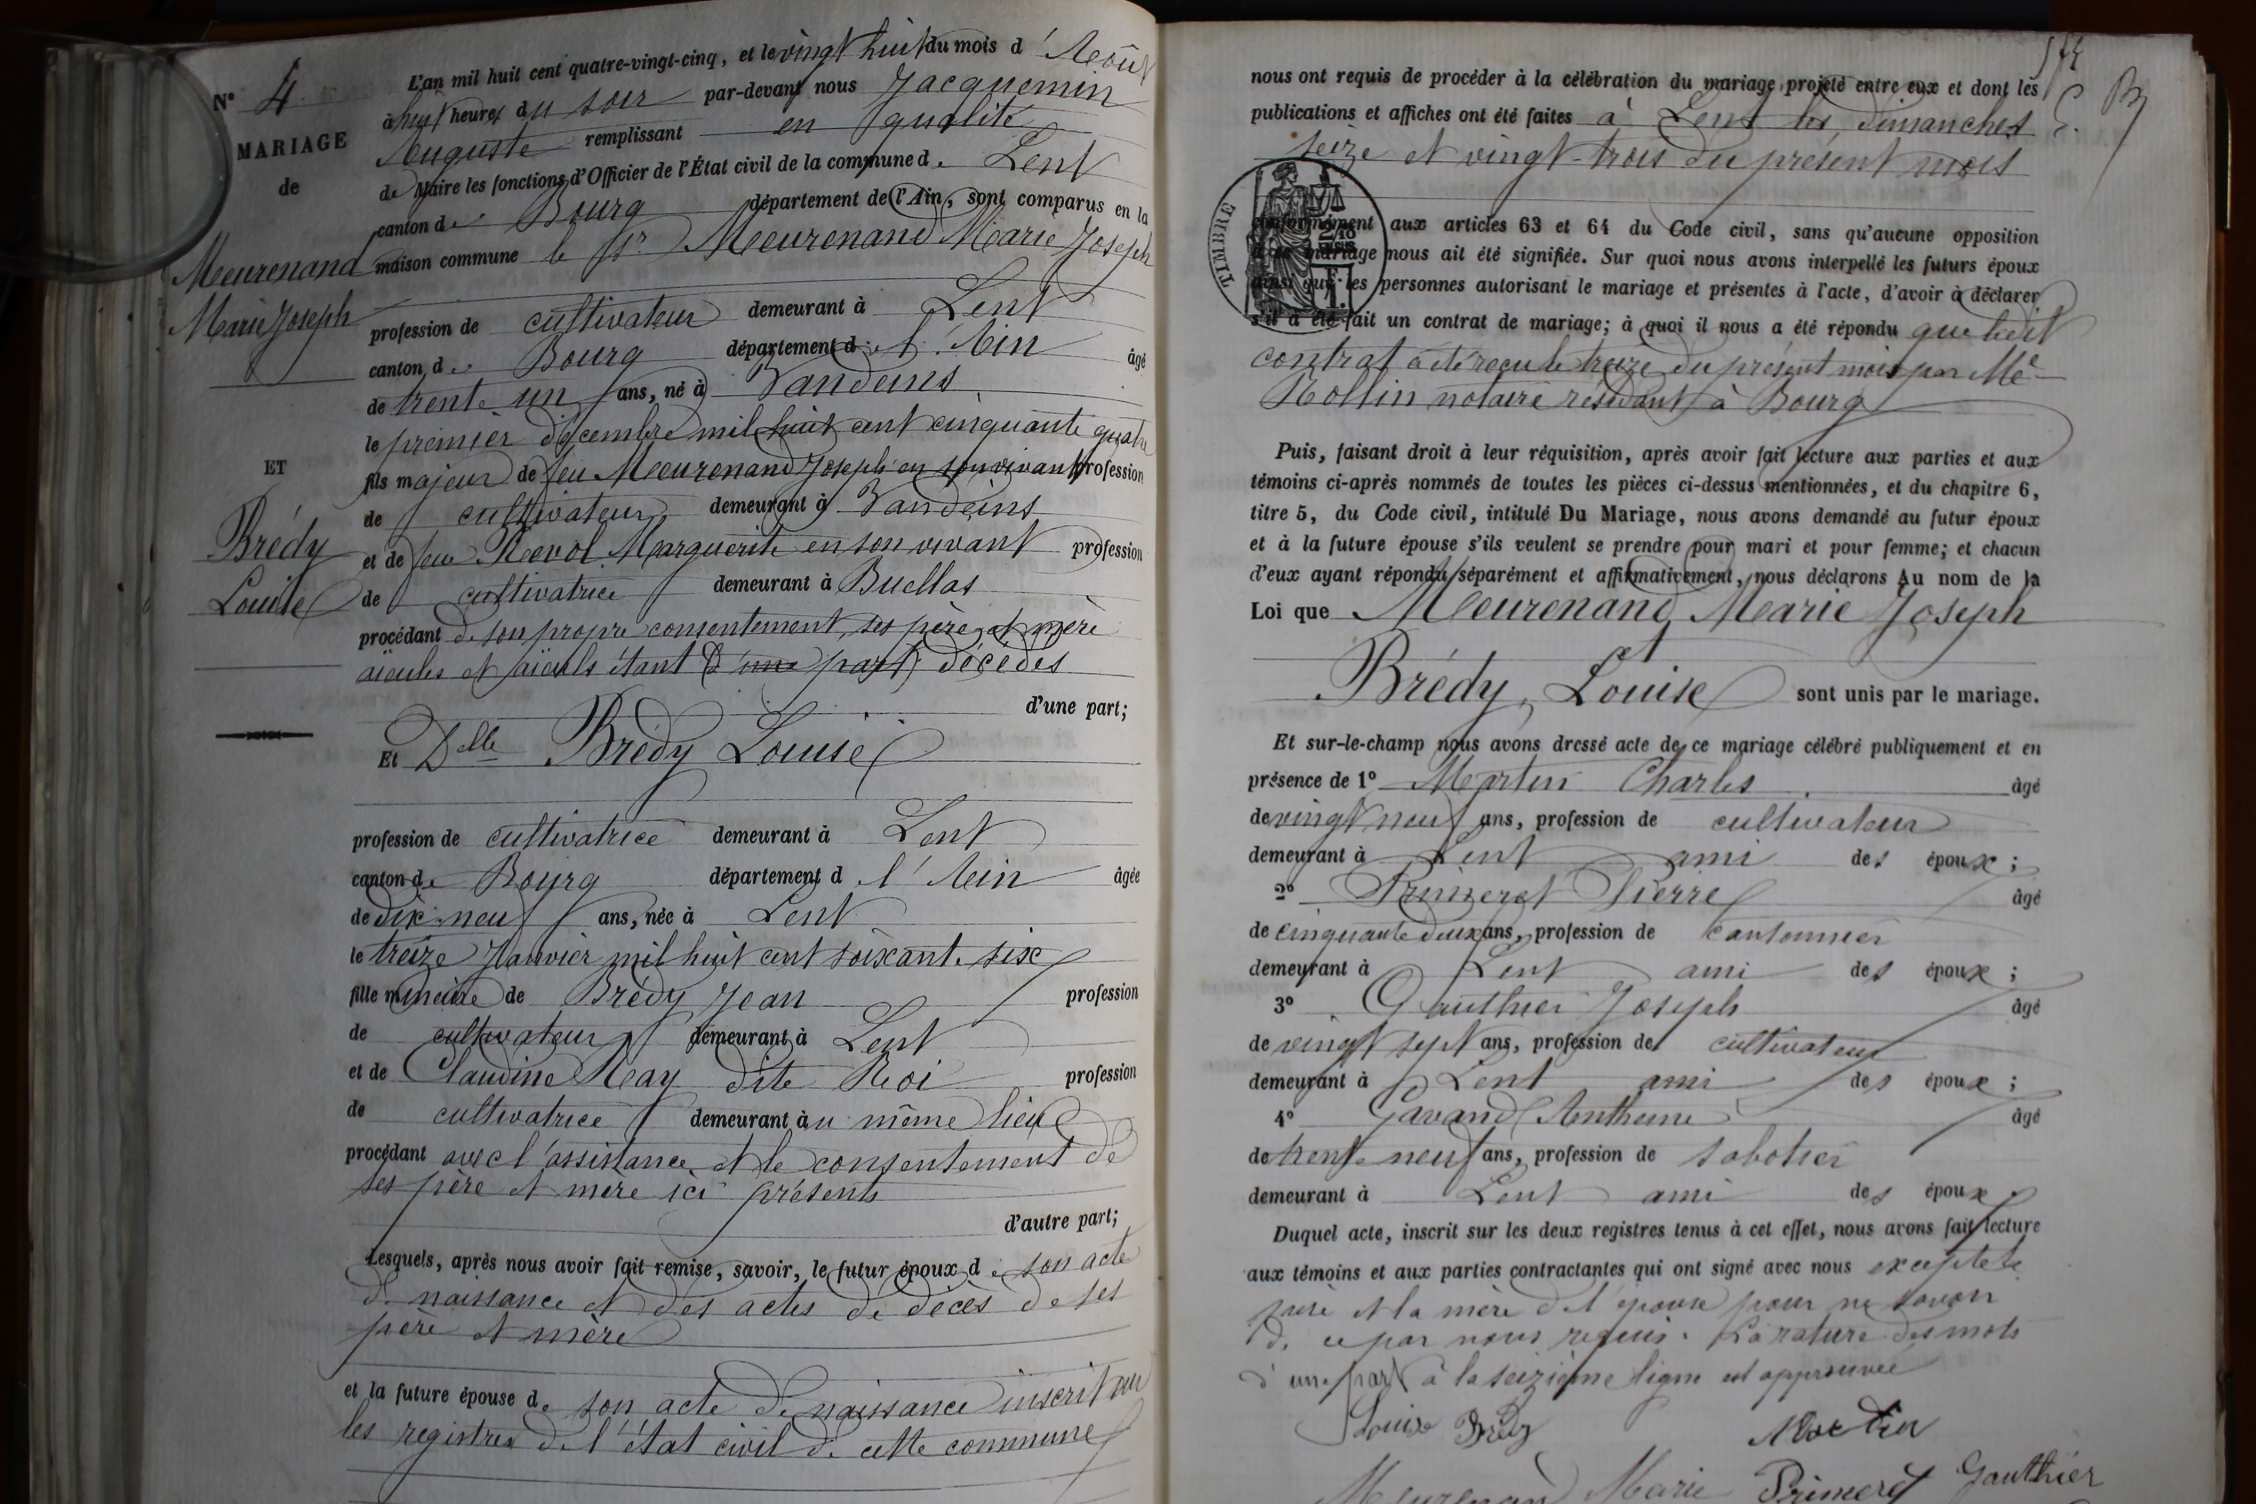 N° 4
MARIAGE
de
Meurenand
Marie Joseph
ET
Brédy
Louise
L'an mil huit cent quatre-vingt-cinq, et le vingt huit du mois d'Août
à huit heures du soir par-devant nous Jacquemin
Auguste remplissant en qualité
de Maire les fonctions d'Officier de l'État civil de la commune de Lent
canton de Bourg département de l'Ain, sont comparus en la
maison commune le sr Meurenand Marie Joseph
profession de cultivateur demeurant à Lent
canton de Bourg département de l'Ain âgé
de trente un ans, né à Vandeins
le premier décembre mil huit cent cinquante quatre
fils majeur de feu Meurenand Joseph en son vivant profession
de cultivateur demeurant à Vandeins
et de feue Revol Marguerite en son vivant profession
de cultivatrice demeurant à Buellas
procédant de son propre consentement, ses père et mère
aïeules et aïeuls étant d'une part décédés
d'une part;
Et Delle Brédy Louise
profession de cultivatrice demeurant à Lent
canton de Bourg département d l'Ain âgée
de dix-neuf ans, née à Lent
le treize Janvier mil huit cent soixante six
fille mineure de Brédy Jean profession
de cultivateur demeurant à Lent
et de Claudine Ray dite Roi profession
de cultivatrice demeurant au même lieu
procédant avec l'assistance et le consentement de
ses père et mère ici présents
d'autre part;
Lesquels, après nous avoir fait remise, savoir, le futur époux de son acte
de naissance et des actes de décès de ses
père et mère
et la future épouse de son acte de naissance inscrit sur
les registres de l'état civil de cette commune
174
nous ont requis de procéder à la célébration du mariage projeté entre eux et dont les
publications et affiches ont été faites à Lent les dimanches
seize et vingt-trois du présent mois
TIMBRE
conformément aux articles 63 et 64 du Code civil, sans qu'aucune opposition
à ce mariage nous ait été signifiée. Sur quoi nous avons interpellé les futurs époux
ainsi que les personnes autorisant le mariage et présentes à l'acte, d'avoir à déclarer
s'il a été fait un contrat de mariage; à quoi il nous a été répondu que ledit
contrat a été reçu le treize du présent mois par Me
Rollin notaire résidant à Bourg
Puis, faisant droit à leur réquisition, après avoir fait lecture aux parties et aux
témoins ci-après nommés de toutes les pièces ci-dessus mentionnées, et du chapitre 6,
titre 5, du Code civil, intitulé Du Mariage, nous avons demandé au futur époux
et à la future épouse s'ils veulent se prendre pour mari et pour femme; et chacun
d'eux ayant répondu séparément et affirmativement, nous déclarons Au nom de la
Loi que Meurenand Marie Joseph
et
Brédy, Louise sont unis par le mariage.
Et sur-le-champ nous avons dressé acte de ce mariage célébré publiquement et en
présence de 1° Martin Charles âgé
de vingt neuf ans, profession de cultivateur
demeurant à Lent ami des époux;
2° Primeret Pierre âgé
de cinquante deux ans, profession de cantonnier
demeurant à Lent ami des époux;
3° Gauthier Joseph âgé
de vingt sept ans, profession de cultivateur
demeurant à Lent ami des époux;
4° Gavand Anthème âgé
de trente neuf ans, profession de sabotier
demeurant à Lent ami des époux
Duquel acte, inscrit sur les deux registres tenus à cet effet, nous avons fait lecture
aux témoins et aux parties contractantes qui ont signé avec nous excepté le
père et la mère de l'épouse pour ne savoir
de ce par nous requis. La rature des mots
d'une part à la seizième ligne est approuvée
Louise Brédy Martin
Meurenand Marie Primeret Gauthier